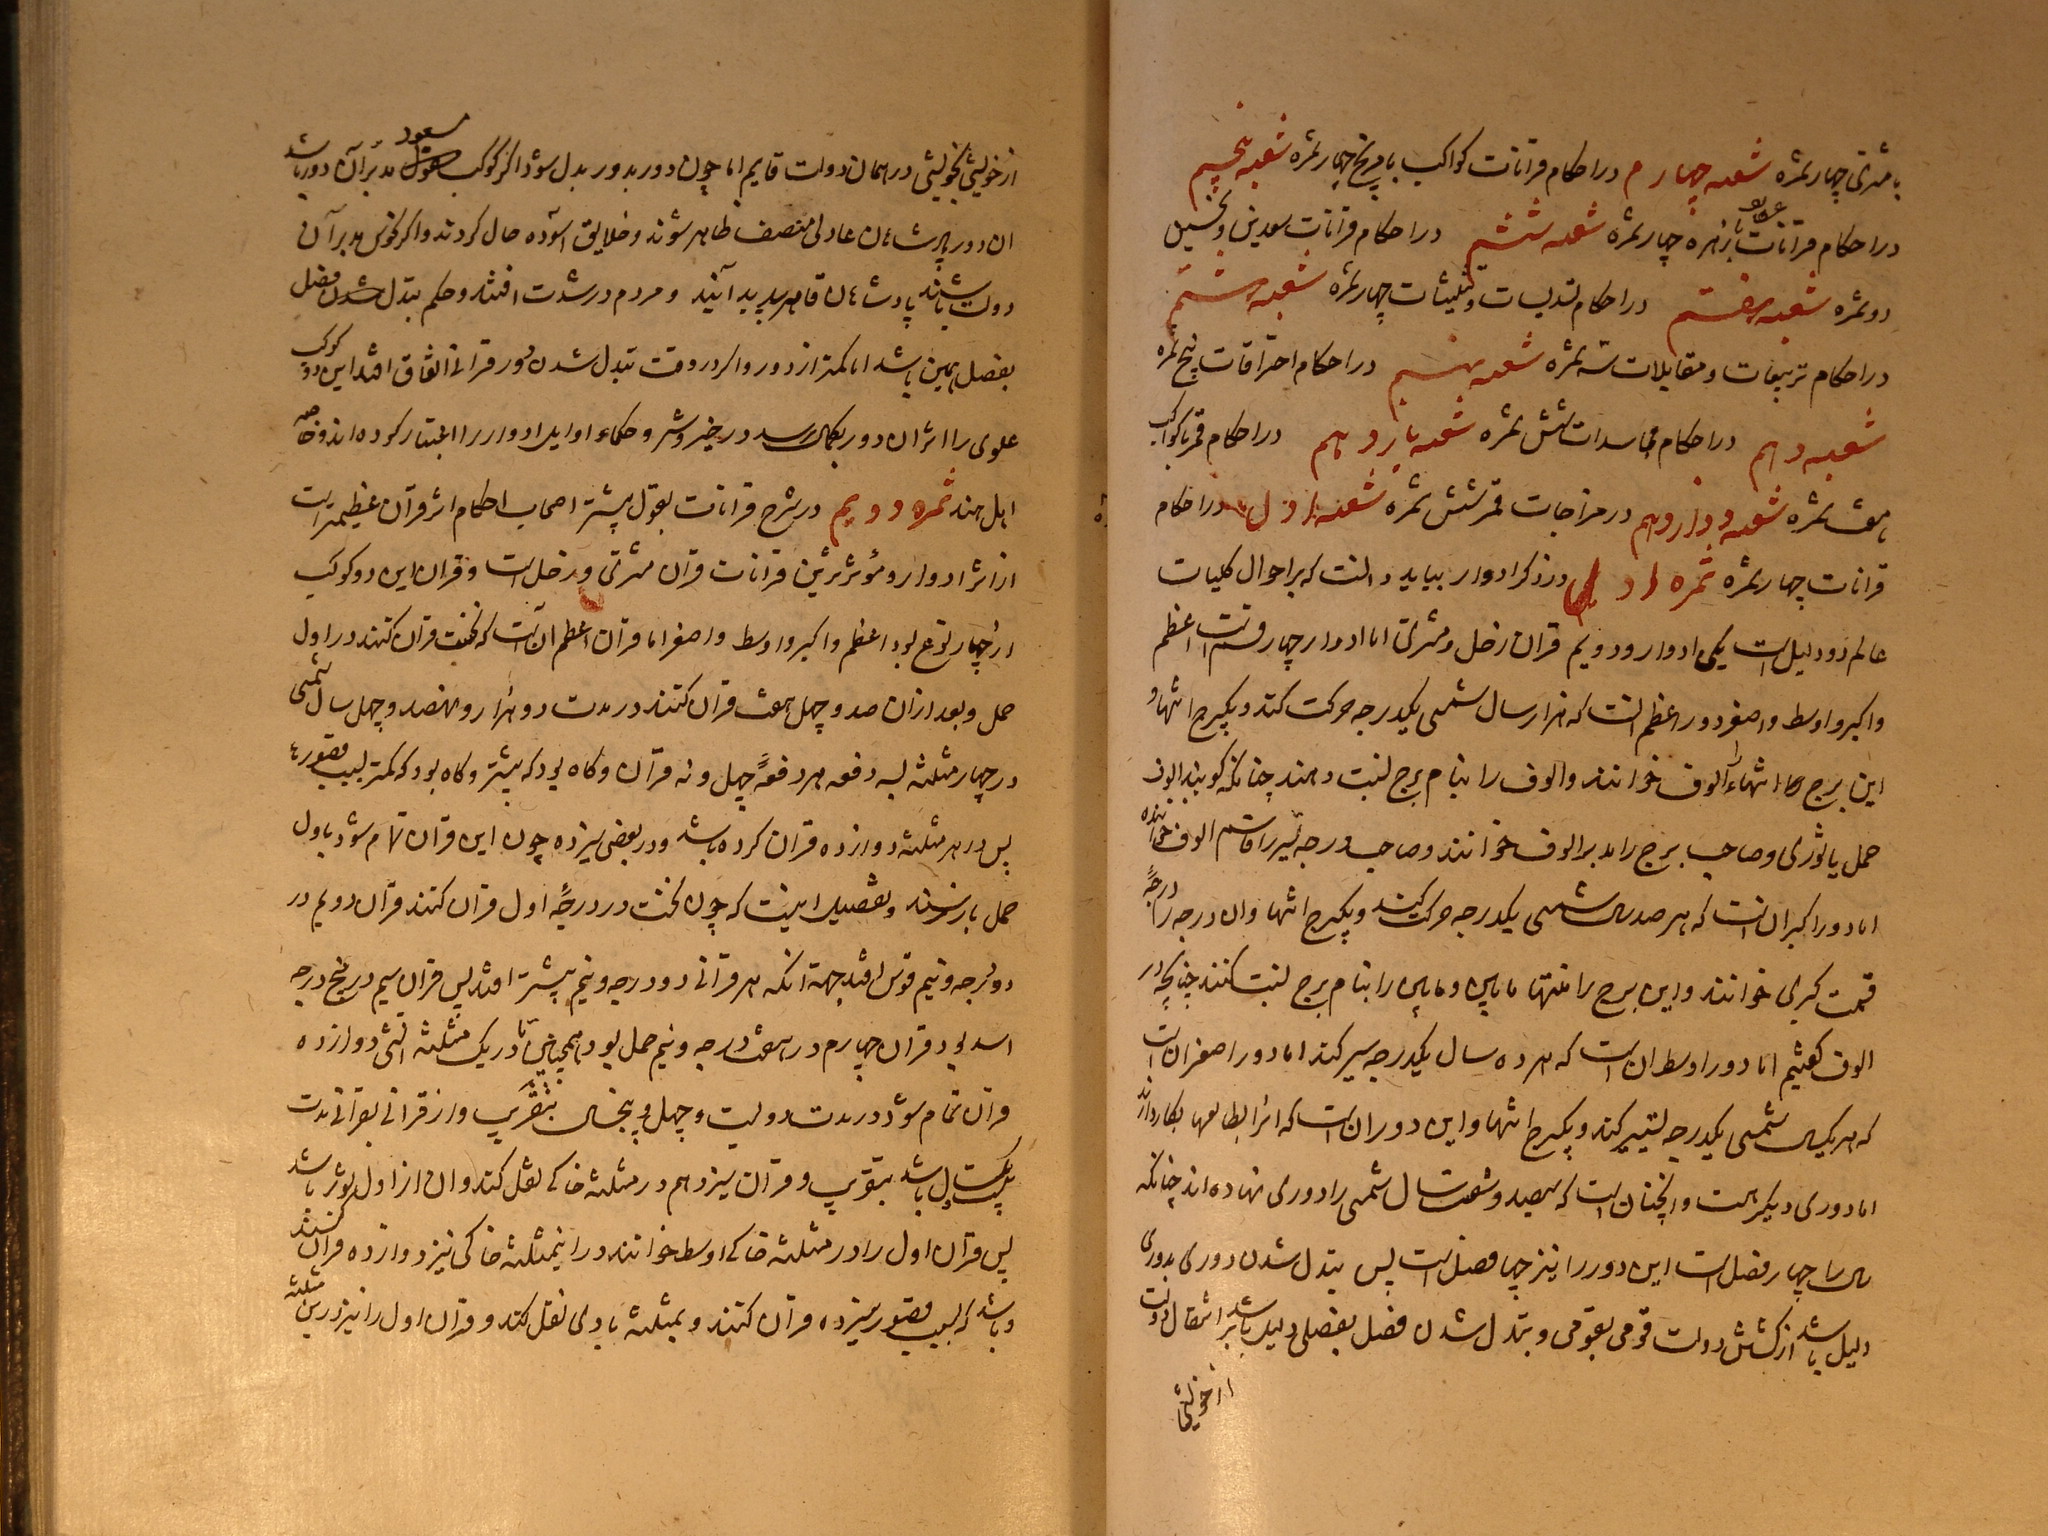 با مشتری چهار ثمره شعبه چهارم در احکام قرانات کواکب با مریخ چهار ثمره شعبه پنجم
در احکام قرانات با زهره چهار ثمره شعبه ششم در احکام قرانات سعدین و نحسین
دو ثمره شعبه هفتم در احکام تسدیسات و تثلیثات چهار ثمره شعبه هشتم
در احکام تربیعات و مقابلات سه ثمره شعبه نهم در احکام احتراقات پنج ثمره
شعبه دهم در احکام شش ثمره شعبه یازدهم در احکام قمر با کواکب
هفت ثمره شعبه دوازدهم در مزاجات قمر شش ثمره شعبه اول در احکام
قرانات چهار ثمره ثمره اول در ذکر ادوار بباید دانست که بر احوال کلیات
عالم دو دلیل است یکی ادوار و دویم قران زحل و مشتری اما ادوار چهار قسم است اعظم
و اکبر و اوسط و اصغر دور اعظم انست که هزار سال شمسی یکدرجه حرکت کند و یکبرج انتهاء
این برج را انتهاء الوف خوانند و الوف را بنام برج نسبت دهند چنانکه گویند الوف
حمل یا ثوری و صاحب برج را مدبر الوف خوانند و صاحب درجه را قاسم الوف خوانند
اما دور اکبر ان است که هر صد سال شمسی یکدرجه حرکت کند و یکبرج انتها و ان درجه را درجهٔ
قسمت کبری خوانند و این برج را منتها مایین و مایین را بنام برج نسبت کنند چنانچه در
الوف گفتیم اما دور اوسط ان است که هر ده سال یکدرجه سیر کند اما دور اصغر ان است
که هر یکسال شمسی یکدرجه تسییر کند و یکبرج انتها و این دور ان است که انرا بطالعها بکار دارند
اما دوری دیگر هست و انچنان است که سیصد و شصت سال شمسی را دوری نهاده اند چنانکه
سال را چهار فصل است این دور را نیز چهار فصل است پس بتدل شدن دوری بدوری
دلیل باشد از کشش دولت قومی بقومی و بتدل شدن فصل بفصلی دلیل باشد بر انتقال دولت
از خویشی
از خویشی بخویشی در همان دولت قایم اما چون دور بدور بدل شود اگر کوکب مسعود مدبر آن دور باشد
ان دور پادشاهان عادل منصف ظاهر شوند و خلایق آسوده حال گردند و اگر نحوس مدبر آن
دولت باشند پادشاهان قاهر پدید آیند و مردم در شدت افتند و حکم بتدل شدن فصل
بفصل همین باشد اما کمتر از دور و اگر در وقت تبدل شدن دور قرانی اتفاق افتد این دو کوکب
علوی را اثر ان دور بکمال رسد در خیر و شر و حکماء اوایل ادوار را اعتبار کرده اند و خاصه
اهل هند ثمره دویم در شرح قرانات بقول بیشتر اصحاب احکام اثر قران عظیمتر است
از اثر ادوار و مؤثرترین قرانات قران مشتری و زحل است و قران این دو کوکب
از چهار نوع بود اعظم و اکبر و اوسط و اصغر اما قران اعظم ان است که نخست قران کنند در اول
حمل و بعد از ان صد و چهل هشت قران کنند در مدت دو هزار و نهصد و چهل سال شمسی
در چهار مثلثه بسه دفعه هر دفعهٔ چهل و نه قران و گاه بود که بیشتر و گاه بود که کمتر بسبب قصور
پس در هر مثلثه دوازده قران کرده باشد و در بعضی سیزده چون این قران تمام شود باول
حمل باز رسند و تفصیل اینست که چون نخست در درجهٔ اول قران کنند قران دویم در
دو درجه و نیم قوس افتد جهة انکه هر قرانی دو درجه و نیم بیشتر افتد پس قران سیم در پنج درجه
اسد بود قران چهارم در هفت درجه و نیم حمل بود و همچنین تا در یک مثلثه آتشی دوازده
قران تمام شود در مدت دویست و چهل و پنجسال بتقریب و از قرانی بقرانی مدت
بیست سال باشد بتقریب و قران سیزدهم در مثلثه خاکی نقل کند و ان از اول ثور باشد
پس قران اول را در مثلثه خاکی اوسط خوانند در این مثلثه خاکی نیز دوازده قران کنند
و باشد که بسبب قصور سیزده قران کنند و بمثلثه بادی نقل کند و قران اول را نیز در این مثلثه